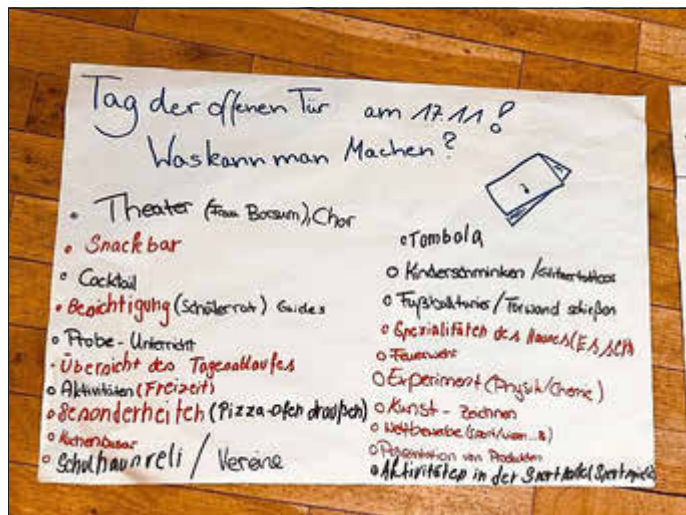 Tag der offenen Tür am 17.11!
Was kann man Machen?
• Theater (Frau Borsum), Chor
• Snackbar
• Cocktail
• Besichtigung (Schülerrat) Guides
• Probe-Unterricht
• Übersicht des Tagesablaufes
• Aktivitäten (Freizeit)
• Besonderheiten (Pizza-Ofen draußen)
• Kuchenbasar
• Schulhaunreli / Vereine
• Tombola
• Kinderschminken / Glitzertattoos
• Fußballturnier / Torwand schießen
• Spezialitäten des Hauses (ESSEN)
• Feuerwehr
• Experiment (Physik/Chemie)
• Kunst - Zeichnen
• Wettbewerbe
• Präsentation von Produkten
• Aktivitäten in der Sporthalle (Sportspiele